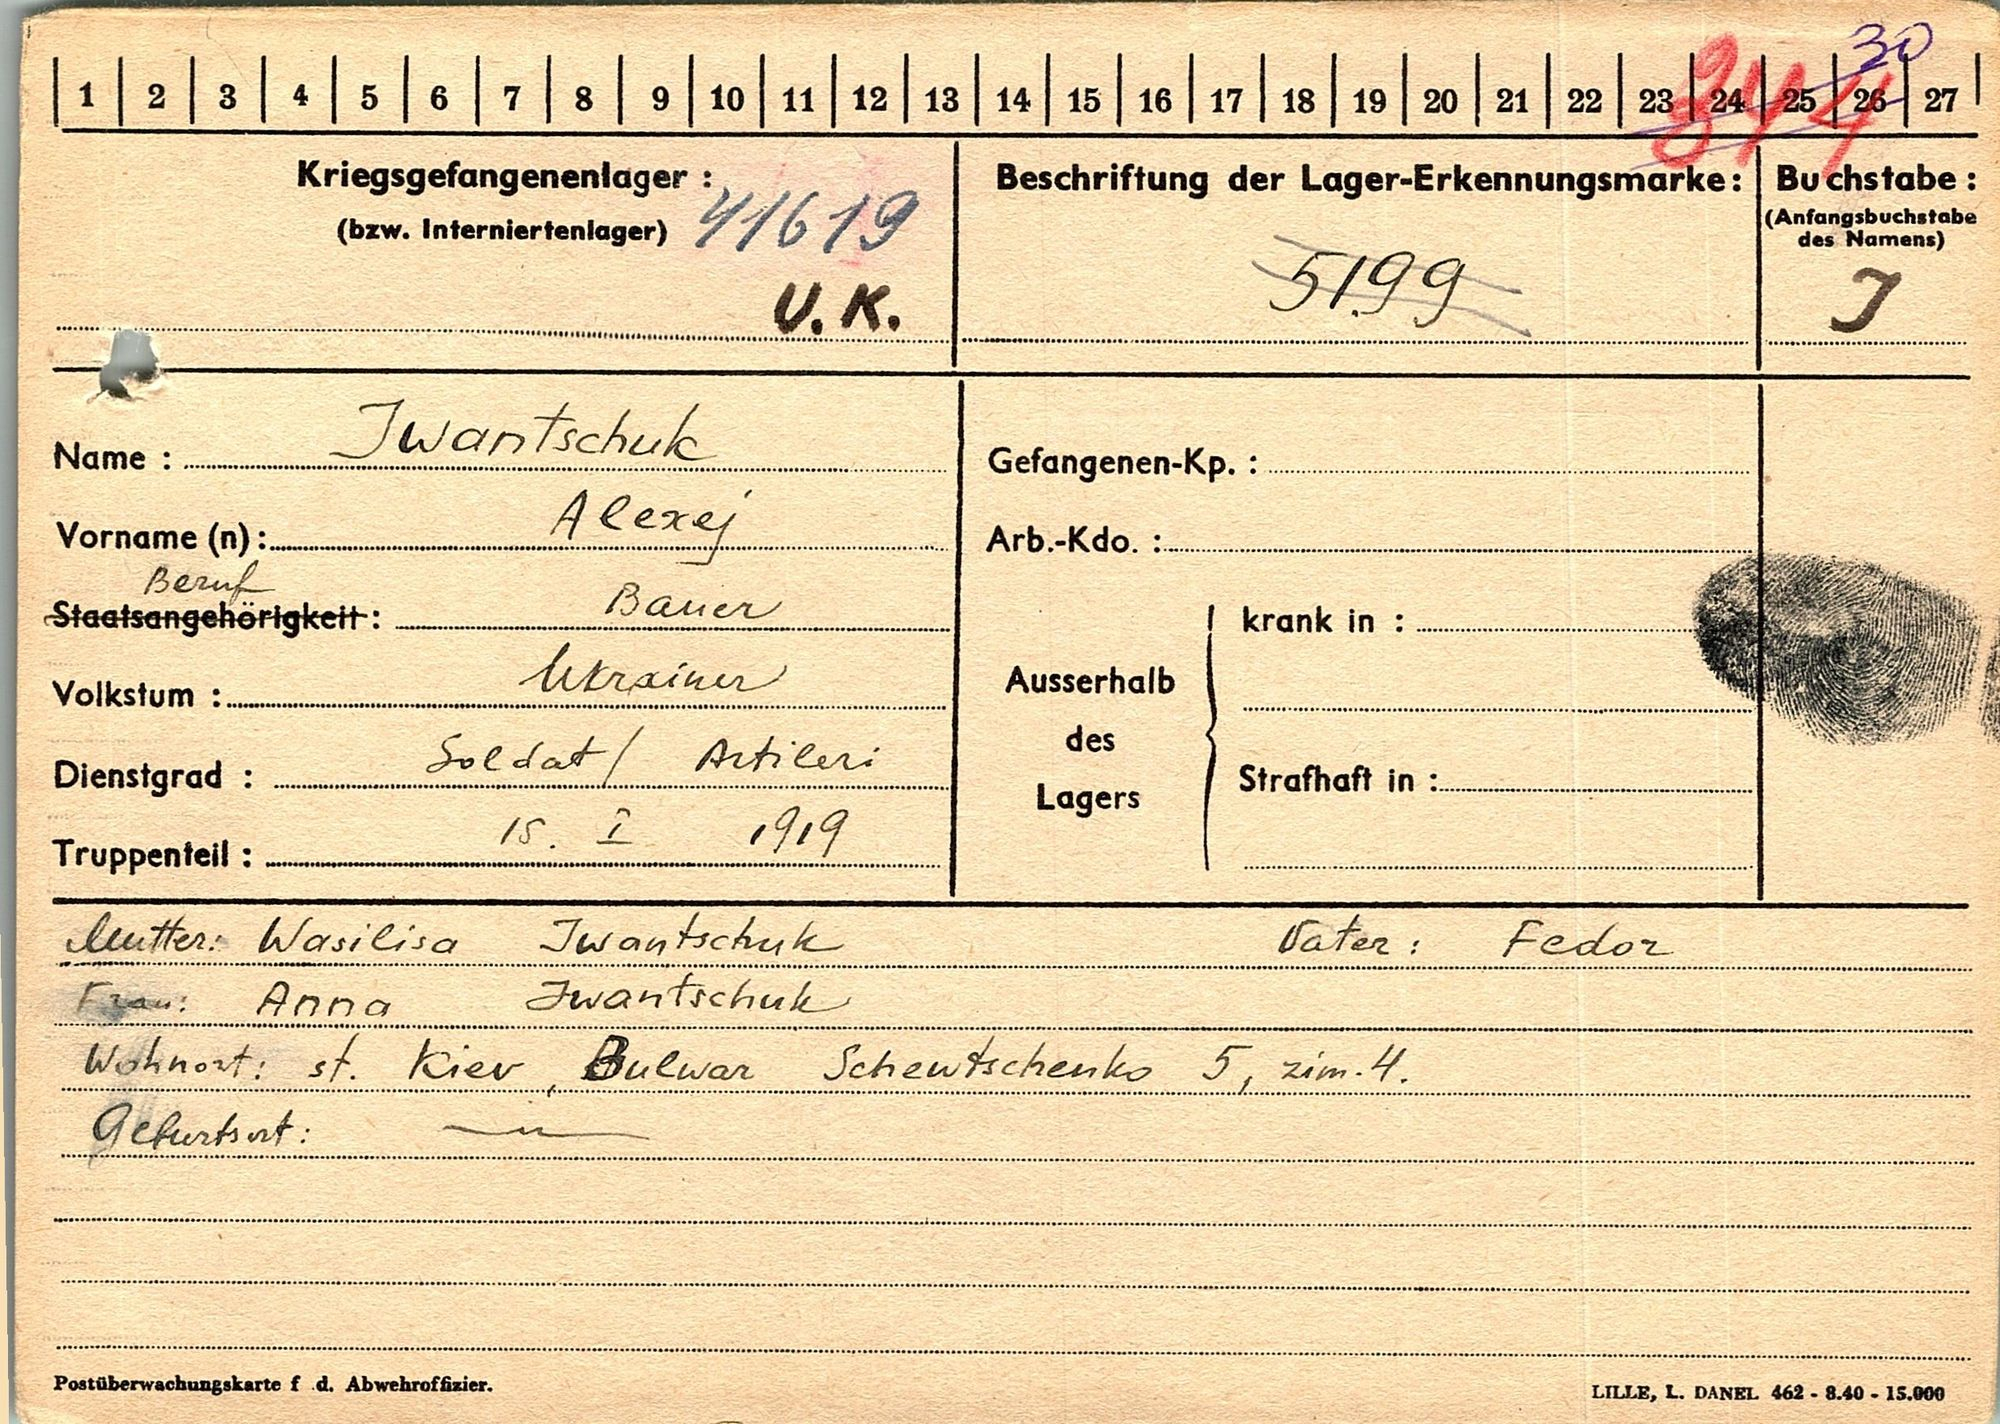 30
344
1 2 3 4 5 6 7 8 9 10 11 12 13 14 15 16 17 18 19 20 21 22 23 24 25 26 27
Kriegsgefangenenlager :
(bzw. Interniertenlager) 41619
U.K.
Beschriftung der Lager-Erkennungsmarke:
5199
Buchstabe :
(Anfangsbuchstabe
des Namens)
J
Name : Jwantschuk
Vorname (n) : Alexej
Beruf
Staatsangehörigkeit : Bauer
Volkstum : Ukrainer
Dienstgrad : Soldat/ Artileri
Truppenteil : 15. I 1919
Gefangenen-Kp. :
Arb.-Kdo. :
Ausserhalb
des
Lagers
krank in :
Strafhaft in :
Mutter: Wasilisa Jwantschuk Vater: Fedor
Frau: Anna Jwantschuk
Wohnort: st. Kiev, Bulwar Schewtschenko 5, zim. 4.
Geburtsort: —"—
Postüberwachungskarte f d. Abwehroffizier.
LILLE, L. DANEL 462 - 8.40 - 15.000